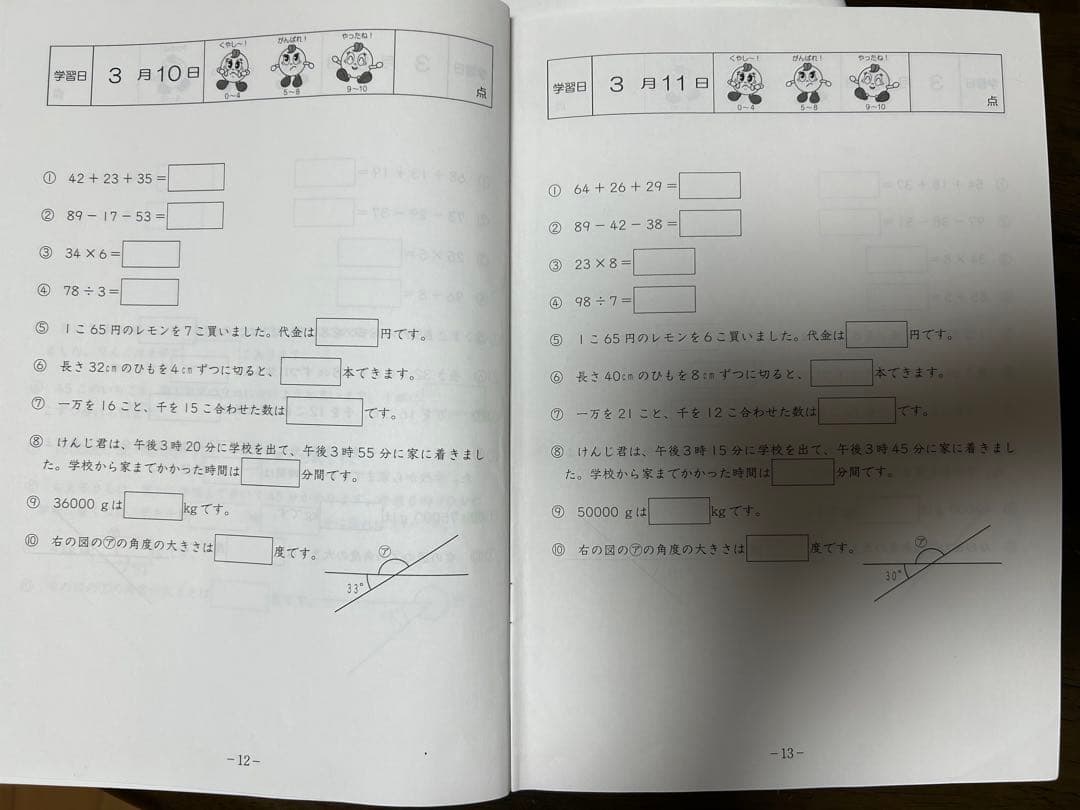 学習日 3月10日 くやし〜! がんばれ! やったね! 点
0〜4 5〜8 9〜10
① 42+23+35=
② 89-17-53=
③ 34×6=
④ 78÷3=
⑤ 1こ65円のレモンを7こ買いました。代金は 円です。
⑥ 長さ32cmのひもを4cmずつに切ると、 本できます。
⑦ 一万を16こと、千を15こ合わせた数は です。
⑧ けんじ君は、午後3時20分に学校を出て、午後3時55分に家に着きまし
た。学校から家までかかった時間は 分間です。
⑨ 36000gは kgです。
⑩ 右の図の㋐の角度の大きさは 度です。
㋐
33°
-12-
学習日 3月11日 くやし〜! がんばれ! やったね! 点
0〜4 5〜8 9〜10
① 64+26+29=
② 89-42-38=
③ 23×8=
④ 98÷7=
⑤ 1こ65円のレモンを6こ買いました。代金は 円です。
⑥ 長さ40cmのひもを8cmずつに切ると、 本できます。
⑦ 一万を21こと、千を12こ合わせた数は です。
⑧ けんじ君は、午後3時15分に学校を出て、午後3時45分に家に着きまし
た。学校から家までかかった時間は 分間です。
⑨ 50000gは kgです。
⑩ 右の図の㋐の角度の大きさは 度です。
㋐
30°
-13-